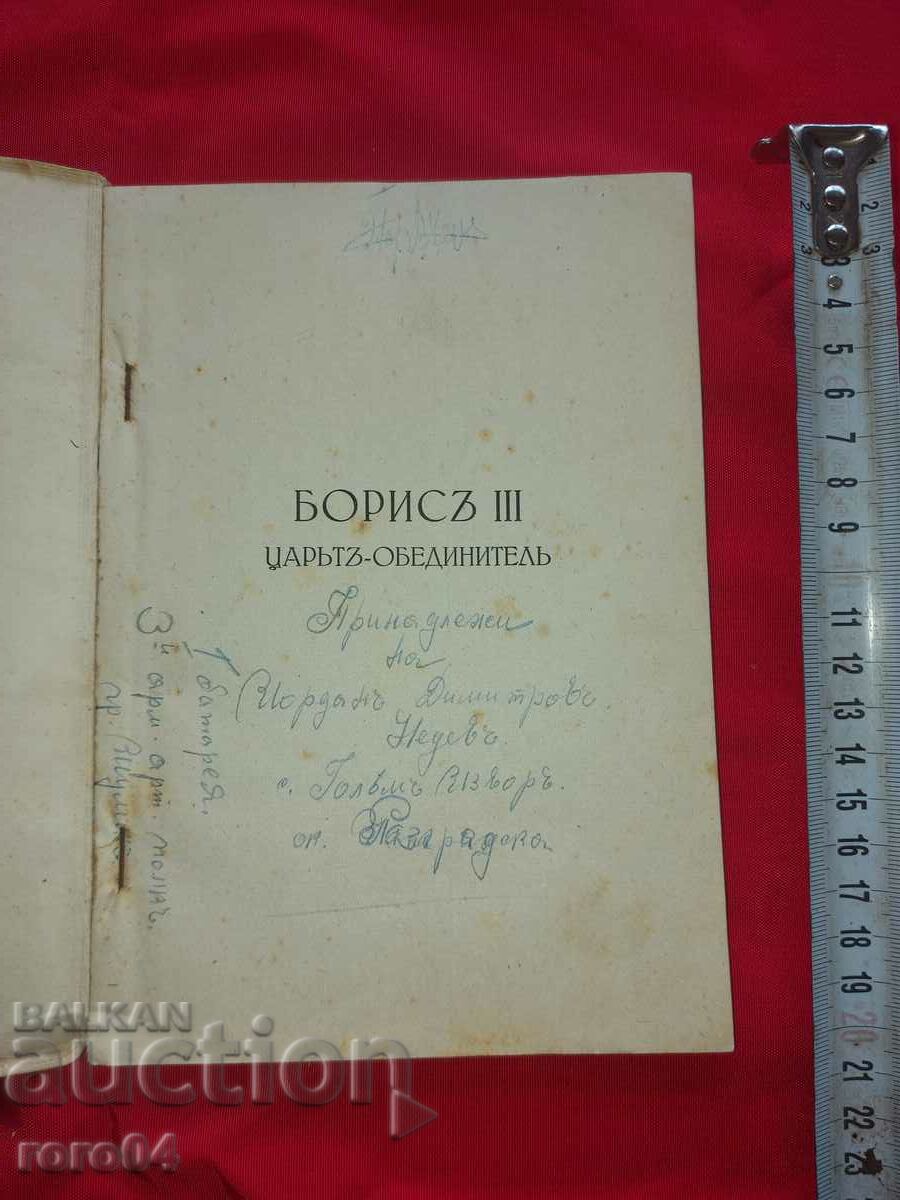 БОРИСЪ III
ЦАРЬТЪ-ОБЕДИНИТЕЛЬ
Принадлежи
на
Иорданъ Димитровъ.
Недевъ.
с. Голѣмъ Изворъ.
ок. Разградско
1 батарея.
3й арм. арт. полкъ.
гр. Шумен
2
2
3
3
4
5
6
7
8
9
11
12
13
14
15
16
17
18
19
20
21
22
23
BALKAN
auction
roro04